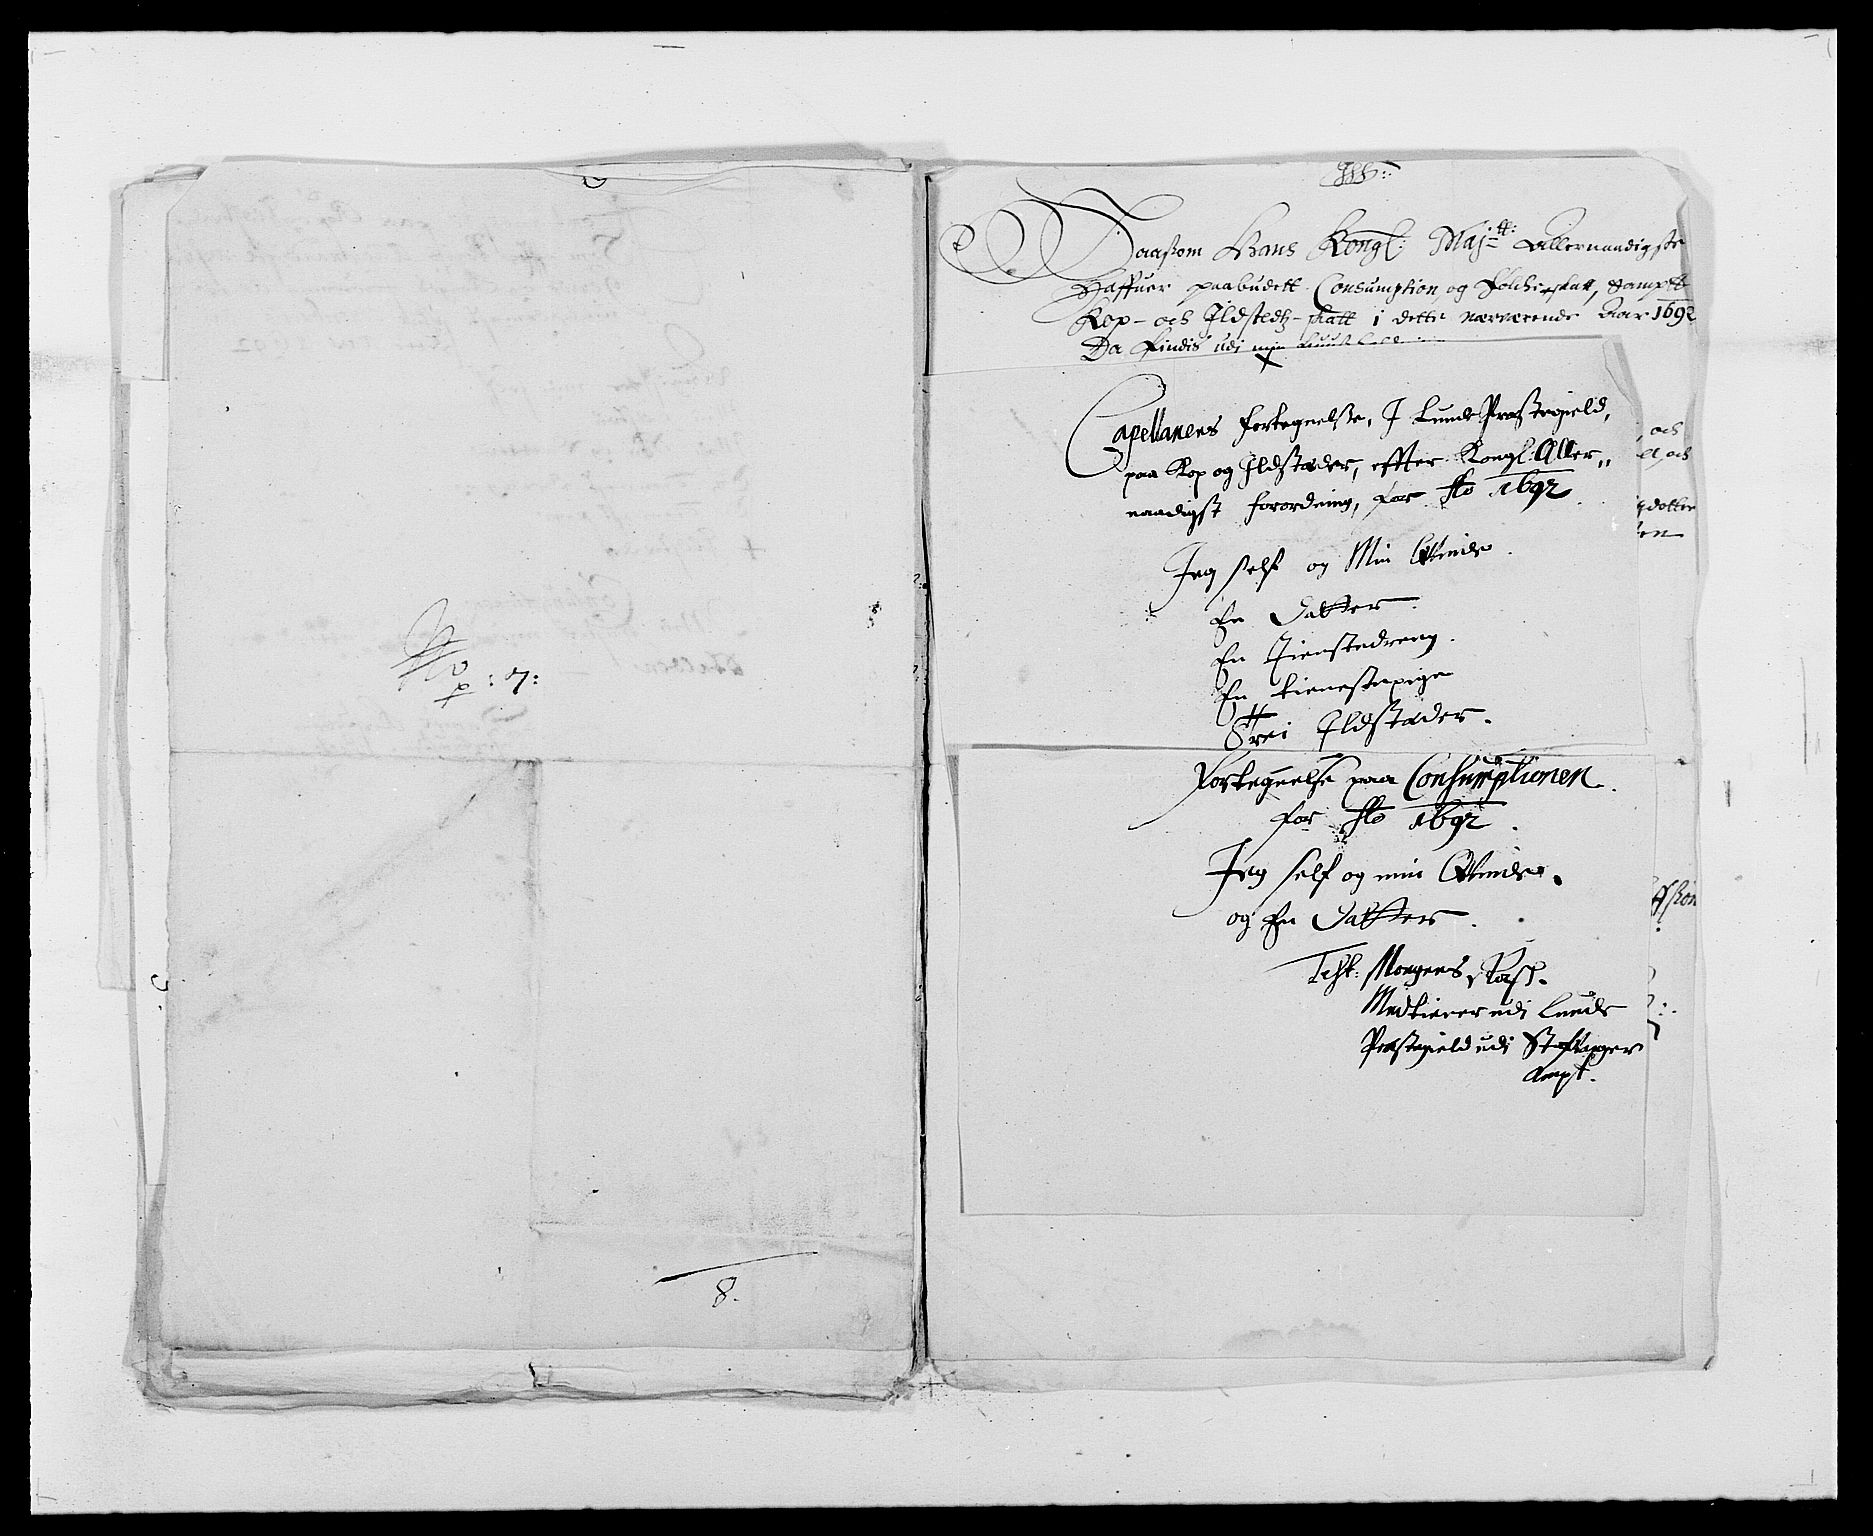 No
p : 7:
8.
Saasom Hans Kongl: Maj:tt: Allernaadigste
Haffuer paabudett Consumption og Folcheskatt, sampt
Kop- och Ildstedtz-skatt i dette nærværende Aar 1692
Da Findis udi min
Capellanens fortegnelse, I Lunde Præstegield,
paa Kop og Ildstæder, effter Kongl: Aller„
naadigst forordning, for Ao 1692
Jeg self og Min Qvinde.
En Datter.
En Tienstedreng.
En tienestepige
Trei Ildstæder.
Fortegnelse paa Consumptionen
for Ao 1692.
Jeg self og min Qvinde.
og En Datter.
Test: Mogens Rasch.
Medtiener udi Lunde
Præstegield udi Stafanger
Ampt.
, och
och
dotter